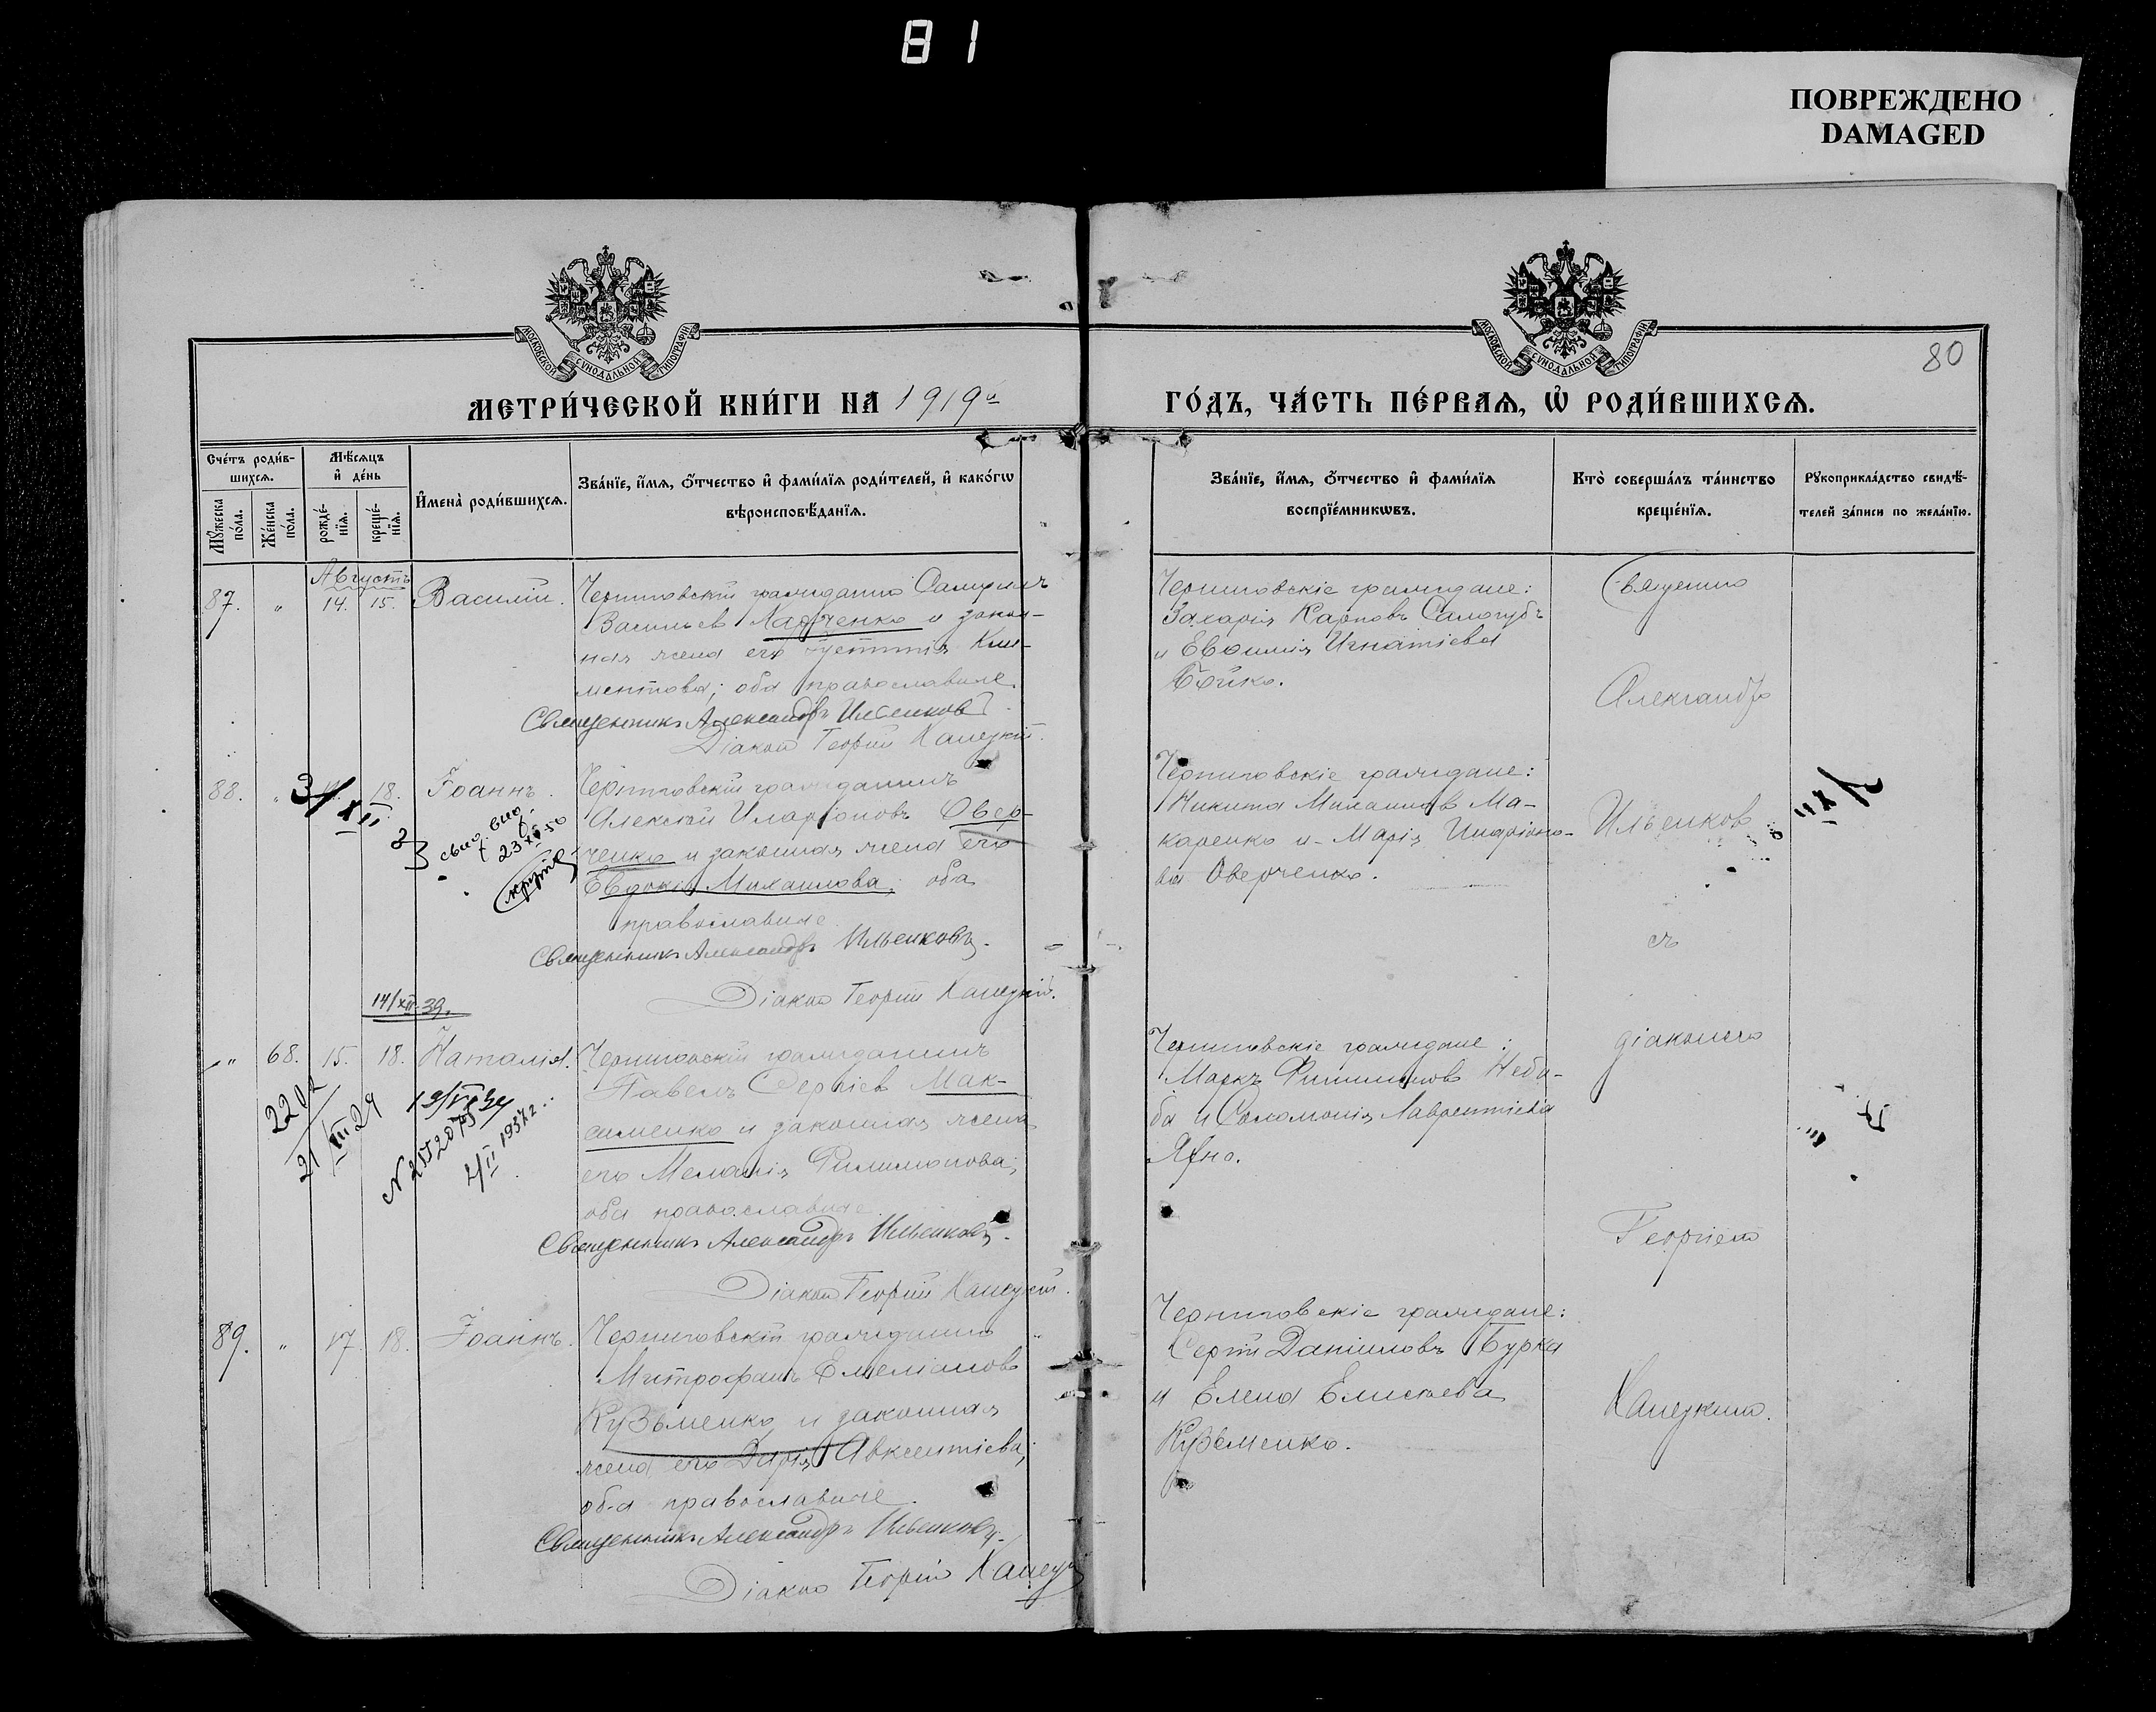 81
ПОВРЕЖДЕНО
DAMAGED
МОСКОВСКОЙ СѴНОДАЛЬНОЙ ТИПОГРАФІИ
МОСКОВСКОЙ СѴНОДАЛЬНОЙ ТИПОГРАФІИ
80
МЕТРИ́ЧЕСКОЙ КНИ́ГИ НА 1919й
ГО́ДЪ, ЧА́СТЬ ПЕ́РВАѦ, Ѡ҆ РОДИ́ВШИХСѦ.
Сче́тъ роди́в-
шихсѧ.
Мꙋ́жеска по́ла.
Же́нска по́ла.
Мѣ́сѧцъ
и҆ де́нь
рожде́-нїѧ.
креще́-нїѧ.
И҆мена̀ роди́вшихсѧ.
Зва́нїе, и҆́мѧ, ѻ҆́тчество и҆ фами́лїѧ роди́телей, и҆ како́гѡ
вѣроисповѣ́данїѧ.
Зва́нїе, и҆́мѧ, ѻ҆́тчество и҆ фами́лїѧ
воспрїе́мникѡвъ.
Кто̀ соверша́лъ та́инство
креще́нїѧ.
Рꙋкоприкла́дство свидѣ́-
телей за́писи по жела́нїю.
Августъ
87. " 14. 15. Василій.
Черниговскій гражданинъ Самуилъ
Васильев Харченко и закон-
ная жена его Кли-
ментова; оба православные.
Священникъ Александръ Ильенковъ
Діаконъ Георгій Ханецкій.
Черниговскіе граждане:
Захарія Карповъ Салогубъ
и Евфимія Игнатіева
Бойко.
88. " 18. Іоаннъ.
Черниговскій гражданинъ
Алексій Иларіоновъ Овер-
ченко и законная жена его
Евдокія Михаилова; оба
православные
Священникъ Александръ Ильенковъ.
Діаконъ Георгій Ханецкій.
3/XII
23 XI 50
Черниговскіе граждане:
Никита Михаиловъ Ма-
каренко и Марія Иларіоно-
ва Оверченко.
14/XII-39.
" 68. 15. 18. Наталія.
Черниговскій гражданинъ
Павелъ Сергіев Мак-
сименко и законная жена
его Меланія Филимонова;
оба православные.
Священникъ Александръ Ильенковъ.
Діаконъ Георгій Ханецкій.
2202
21/III 29
2/II 1937 г.
Черниговскіе граждане:
Маркъ Филимоновъ Неба-
ба и Соломонія Лаврентіева
Яхно.
89. " 17. 18. Іоаннъ.
Черниговскій гражданинъ
Митрофанъ Емеліановъ
Кузьменко и законная
жена его Дарія Авксентіева;
оба православные.
Священникъ Александръ Ильенковъ.
Діаконъ Георгій Ханецк
Черниговскіе граждане:
Сергій Даніиловъ Бурка
и Елена Елисѣева
Кузьменко.
Священно
Александр
Ильенков
съ
діакономъ
Георгіемъ
Ханецкимъ.